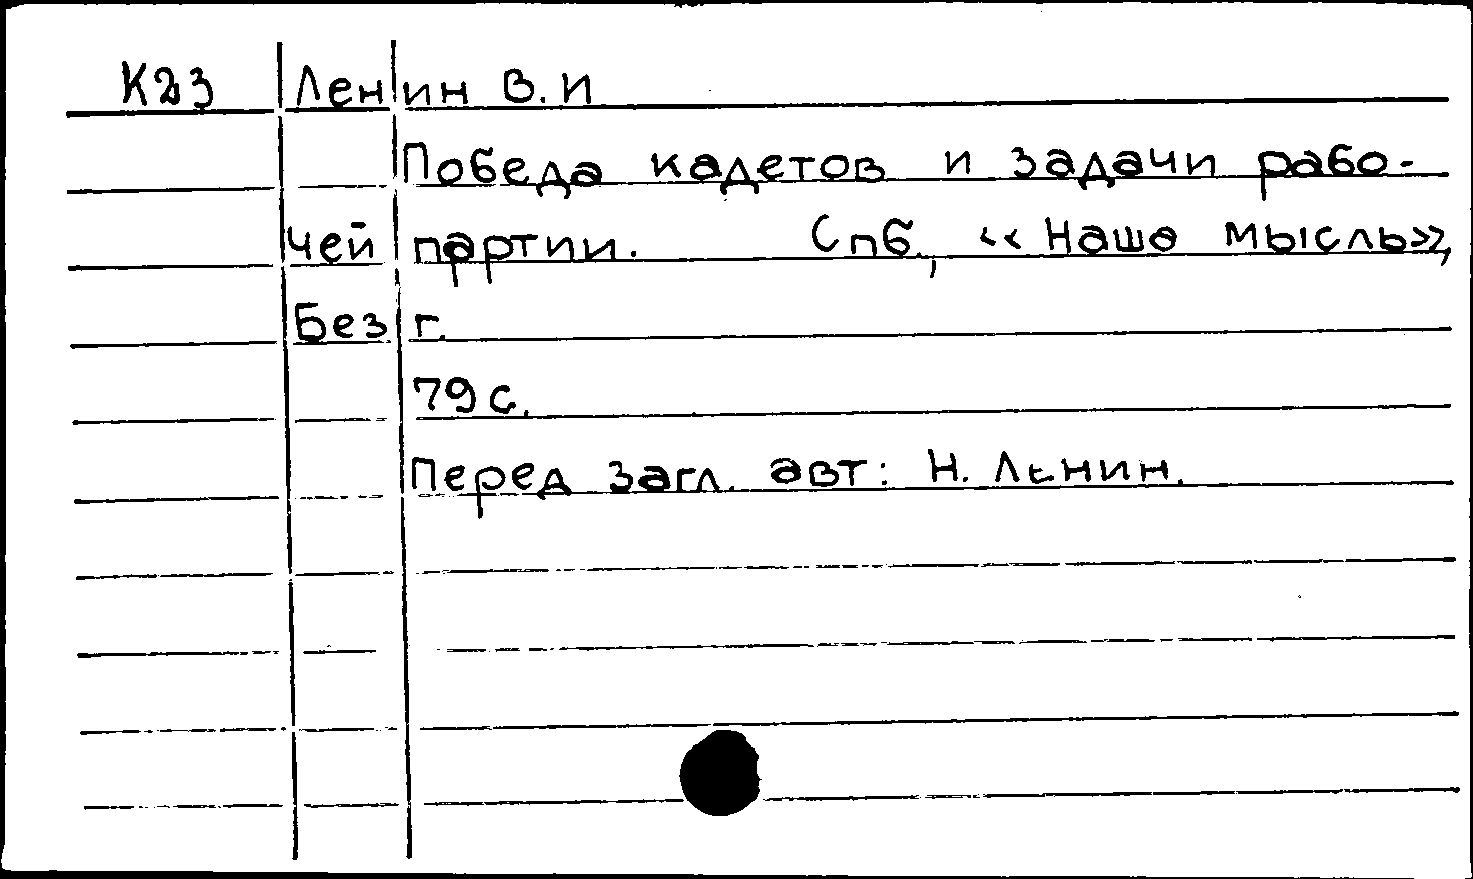 К23 Ленин В.И
Победа кадетов и задачи рабо-
чей партии. Спб., «Наша мысль»,
Без г.
79 с.
Перед загл. авт: Н. Ленин.